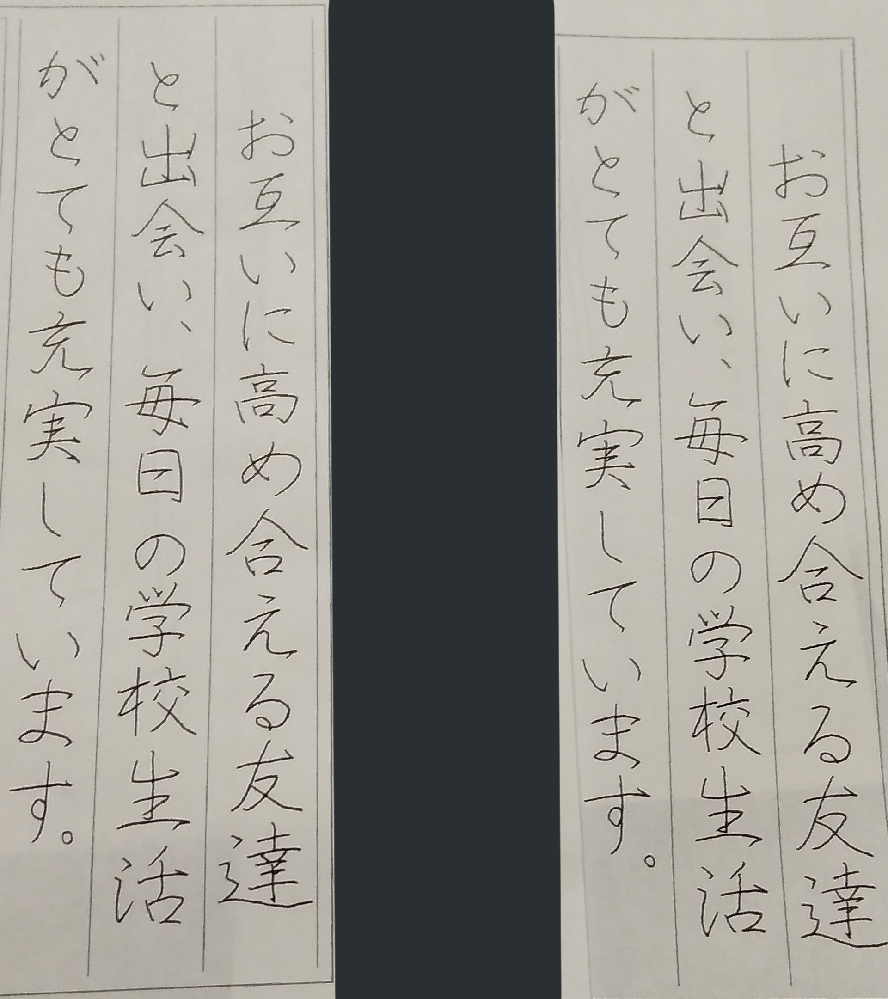 お互いに高め合える友達
と出会い、毎日の学校生活
がとても充実しています。
お互いに高め合える友達
と出会い、毎日の学校生活
がとても充実しています。